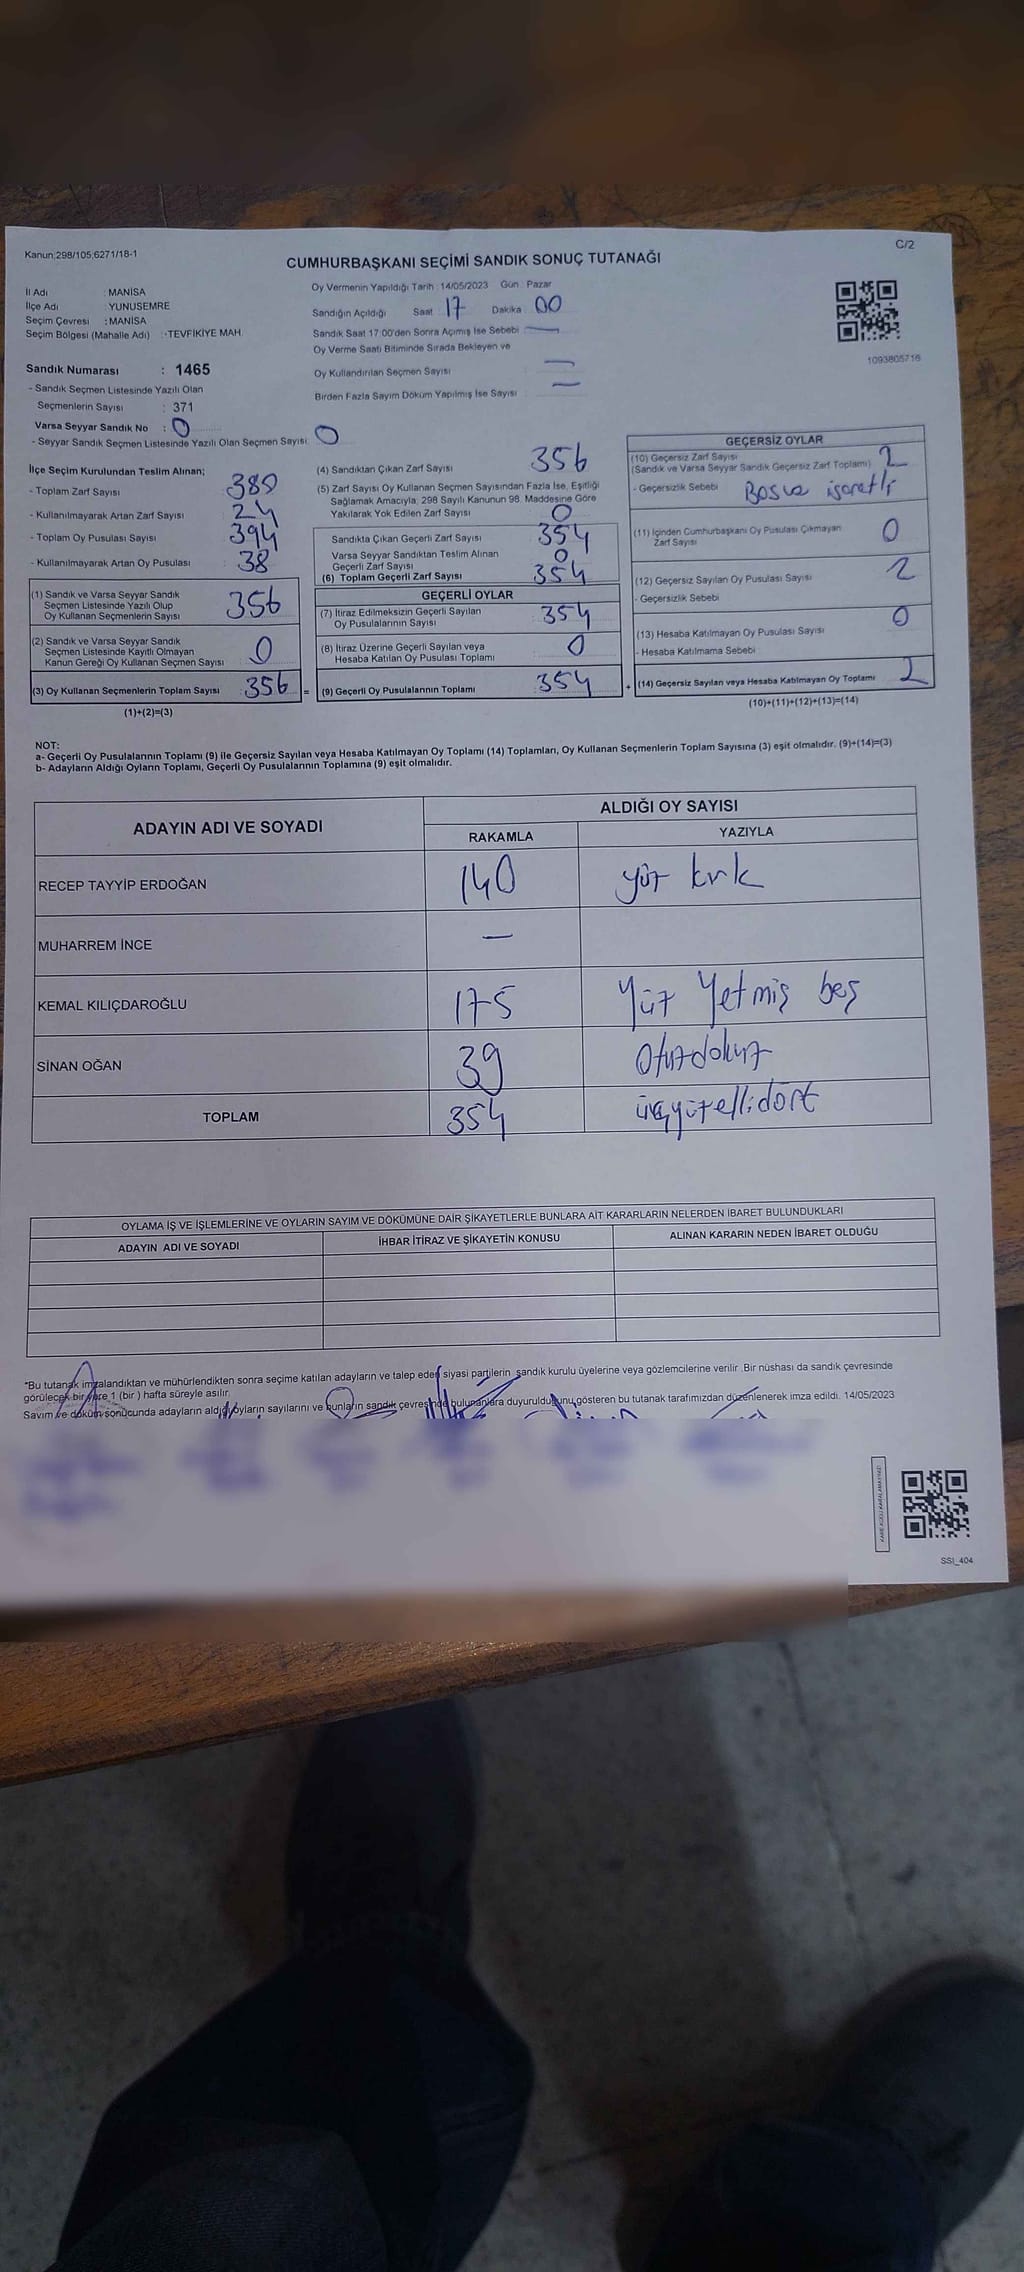 Kanun;298/105;6271/18-1
C/2
CUMHURBAŞKANI SEÇİMİ SANDIK SONUÇ TUTANAĞI
İl Adı : MANİSA
İlçe Adı : YUNUSEMRE
Seçim Çevresi : MANİSA
Seçim Bölgesi (Mahalle Adı) :TEVFİKİYE MAH.
Sandık Numarası : 1465
- Sandık Seçmen Listesinde Yazılı Olan
Seçmenlerin Sayısı : 371
Varsa Seyyar Sandık No : 0
- Seyyar Sandık Seçmen Listesinde Yazılı Olan Seçmen Sayısı: 0
Oy Vermenin Yapıldığı Tarih :14/05/2023 Gün : Pazar
Sandığın Açıldığı Saat : 17 Dakika : 00
Sandık Saat 17.00'den Sonra Açımış İse Sebebi : —
Oy Verme Saati Bitiminde Sırada Bekleyen ve
Oy Kullandırılan Seçmen Sayısı : —
Birden Fazla Sayım Döküm Yapılmış İse Sayısı : —
1093805716
İlçe Seçim Kurulundan Teslim Alınan;
- Toplam Zarf Sayısı : 380
- Kullanılmayarak Artan Zarf Sayısı : 24
- Toplam Oy Pusulası Sayısı : 394
- Kullanılmayarak Artan Oy Pusulası : 38
(1) Sandık ve Varsa Seyyar Sandık
Seçmen Listesinde Yazılı Olup
Oy Kullanan Seçmenlerin Sayısı : 356
(2) Sandık ve Varsa Seyyar Sandık
Seçmen Listesinde Kayıtlı Olmayan
Kanun Gereği Oy Kullanan Seçmen Sayısı : 0
(3) Oy Kullanan Seçmenlerin Toplam Sayısı : 356 =
(1)+(2)=(3)
(4) Sandıktan Çıkan Zarf Sayısı : 356
(5) Zarf Sayısı Oy Kullanan Seçmen Sayısından Fazla İse, Eşitliği
Sağlamak Amacıyla; 298 Sayılı Kanunun 98. Maddesine Göre
Yakılarak Yok Edilen Zarf Sayısı : 0
Sandıkta Çıkan Geçerli Zarf Sayısı : 354
Varsa Seyyar Sandıktan Teslim Alınan
Geçerli Zarf Sayısı : 0
(6) Toplam Geçerli Zarf Sayısı : 354
GEÇERLİ OYLAR
(7) İtiraz Edilmeksizin Geçerli Sayılan
Oy Pusulalarının Sayısı : 354
(8) İtiraz Üzerine Geçerli Sayılan veya
Hesaba Katılan Oy Pusulası Toplamı : 0
(9) Geçerli Oy Pusulalarının Toplamı : 354 +
GEÇERSİZ OYLAR
(10) Geçersiz Zarf Sayısı
(Sandık ve Varsa Seyyar Sandık Geçersiz Zarf Toplamı) : 2
- Geçersizlik Sebebi : işaretli
(11) İçinden Cumhurbaşkanı Oy Pusulası Çıkmayan
Zarf Sayısı : 0
(12) Geçersiz Sayılan Oy Pusulası Sayısı : 2
- Geçersizlik Sebebi
(13) Hesaba Katılmayan Oy Pusulası Sayısı : 0
- Hesaba Katılmama Sebebi
(14) Geçersiz Sayılan veya Hesaba Katılmayan Oy Toplamı : 2
(10)+(11)+(12)+(13)=(14)
NOT:
a- Geçerli Oy Pusulalarının Toplamı (9) ile Geçersiz Sayılan veya Hesaba Katılmayan Oy Toplamı (14) Toplamları, Oy Kullanan Seçmenlerin Toplam Sayısına (3) eşit olmalıdır. (9)+(14)=(3)
b- Adayların Aldığı Oyların Toplamı, Geçerli Oy Pusulalarının Toplamına (9) eşit olmalıdır.
ADAYIN ADI VE SOYADI
ALDIĞI OY SAYISI
RAKAMLA YAZIYLA
RECEP TAYYİP ERDOĞAN 140 yüz kırk
MUHARREM İNCE —
KEMAL KILIÇDAROĞLU 175 Yüz Yetmiş beş
SİNAN OĞAN 39 Otuzdokuz
TOPLAM 354 üçyüzellidört
OYLAMA İŞ VE İŞLEMLERİNE VE OYLARIN SAYIM VE DÖKÜMÜNE DAİR ŞİKAYETLERLE BUNLARA AİT KARARLARIN NELERDEN İBARET BULUNDUKLARI
ADAYIN ADI VE SOYADI İHBAR İTİRAZ VE ŞİKAYETİN KONUSU ALINAN KARARIN NEDEN İBARET OLDUĞU
*Bu tutanak imzalandıktan ve mühürlendikten sonra seçime katılan adayların ve talep eden siyasi partilerin sandık kurulu üyelerine veya gözlemcilerine verilir. Bir nüshası da sandık çevresinde
görülecek bir yere 1 (bir ) hafta süreyle asılır.
Sayım ve döküm sonucunda adayların aldığı oyların sayılarını ve bunların sandık çevresinde bulunanlara duyurulduğunu gösteren bu tutanak tarafımızdan düzenlenerek imza edildi. 14/05/2023
SSI_404